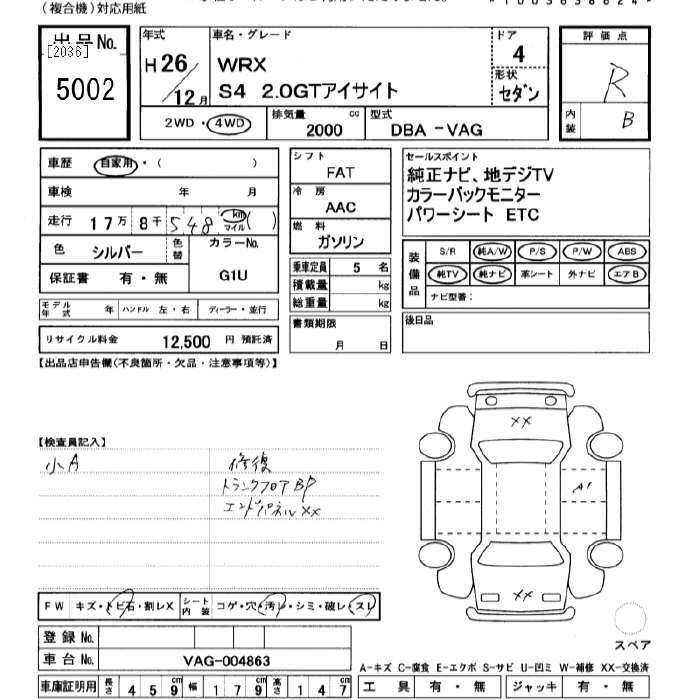 (複合機)対応用紙
出品No.
[2036]
5002
年式
H26/12月
車名・グレード
WRX
S4 2.0GTアイサイト
ドア
4
形状
セダン
評価点
R
内装
B
2WD・4WD
排気量
2000 cc
型式
DBA -VAG
車歴 自家用・( )
車検 年 月
走行 17万8千548 km マイル ( )
色 シルバー 色替
カラーNo.
G1U
保証書 有・無
モデル年式 年 ハンドル 左・右 ディーラー・並行
リサイクル料金 12,500 円 預託済
シフト
FAT
冷房
AAC
燃料
ガソリン
乗車定員 5 名
積載量 kg
総重量 kg
書類期限
月 日
セールスポイント
純正ナビ、地デジTV
カラーバックモニター
パワーシート ETC
装備品
S/R 純A/W P/S P/W ABS
純TV 純ナビ 革シート 外ナビ エアB
ナビ型番:
後日品
【出品店申告欄(不良箇所・欠品・注意事項等)】
【検査員記入】
小A
修復
トランクフロアBP
エンドパネルXX
XX
A1
XX
スペア
FW キズ・トビ石・割レX
シート内装 コゲ・穴・汚レ・シミ・破レ・スレ
登録No.
車台No. VAG-004863
車庫証明用 長さ 459cm 幅 179cm 高さ 147cm
A-キズ C-腐食 E-エクボ S-サビ U-凹ミ W-補修 XX-交換済
工具 有・無 ジャッキ 有・無